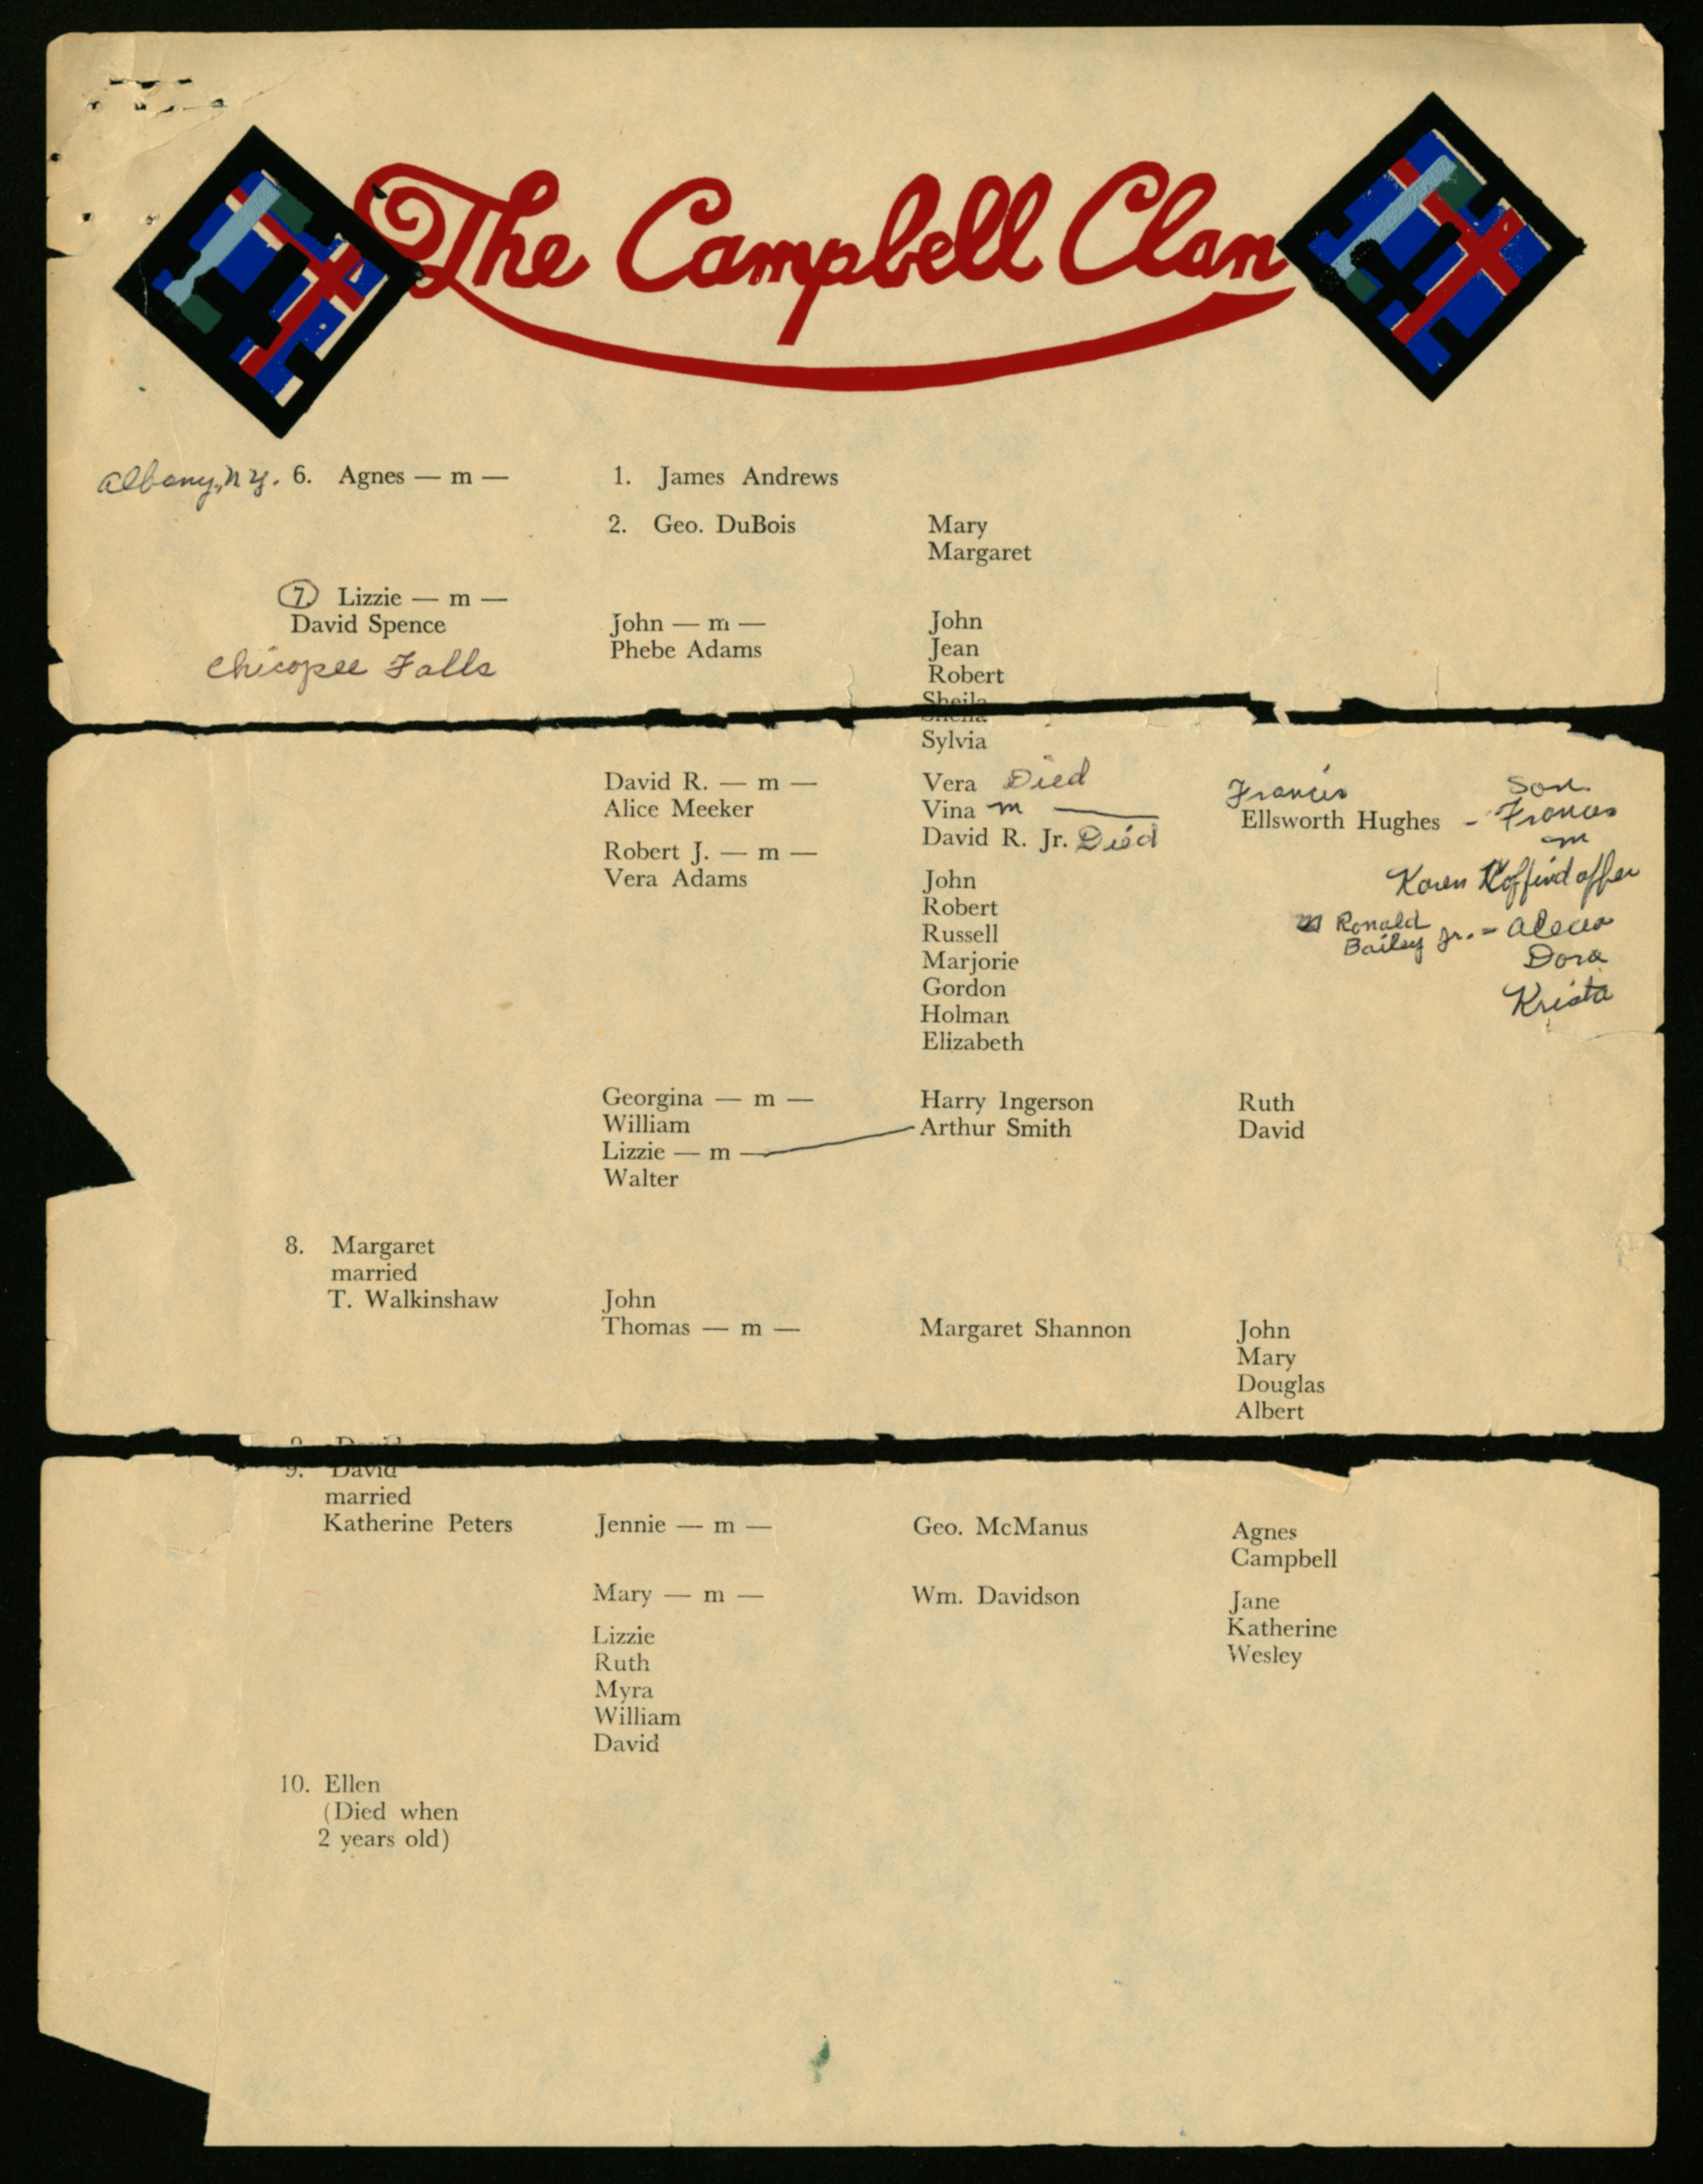 The Campbell Clan
Albany, N.Y. 6. Agnes — m — 1. James Andrews
2. Geo. DuBois Mary
Margaret
7. Lizzie — m —
David Spence John — m — John
Chicopee Falls Phebe Adams Jean
Robert
Sheila
Sylvia
David R. — m — Vera Died Francis Son
Alice Meeker Vina m — Ellsworth Hughes - Francis
David R. Jr. Died m
Robert J. — m —
Vera Adams John Karen
Robert m Ronald
Russell Bailey Jr. =
Marjorie Dora
Gordon Krista
Holman
Elizabeth
Georgina — m — Harry Ingerson Ruth
William Arthur Smith David
Lizzie — m —
Walter
8. Margaret
married
T. Walkinshaw John
Thomas — m — Margaret Shannon John
Mary
Douglas
Albert
9. David
married
Katherine Peters Jennie — m — Geo. McManus Agnes
Campbell
Mary — m — Wm. Davidson Jane
Lizzie Katherine
Ruth Wesley
Myra
William
David
10. Ellen
(Died when
2 years old)